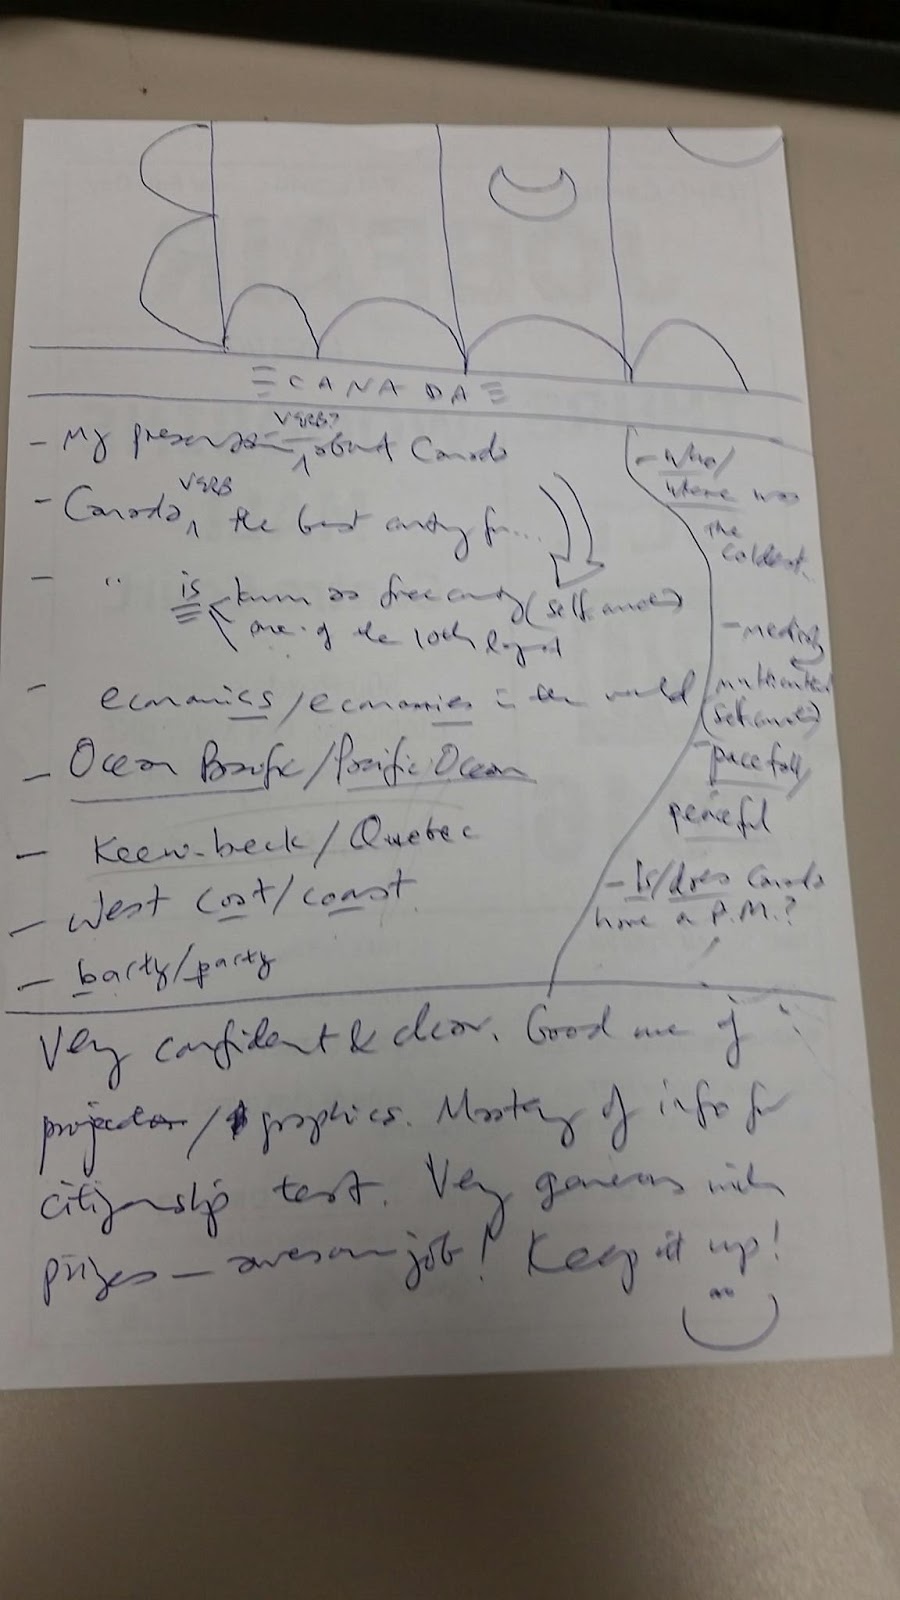 CANADA
VERB?
- My presentation about Canada
VERB
- Canada, the best country for...
- " is known as free country (self-corrected)
one of the 10th largest
- economics / economies in the world
- Ocean Pacific / Pacific Ocean
- Keew-beck / Quebec
- West cost / coast
- barty / party
- who /
where was
the
coldest...
multicultural
(self-corrected)
- pacefully
peaceful
- Is / does Canada
have a P.M.?
Very confident & clear. Good use of
projector / graphics. Mastery of info for
citizenship test. Very generous with
prizes — awesome job! Keep it up!